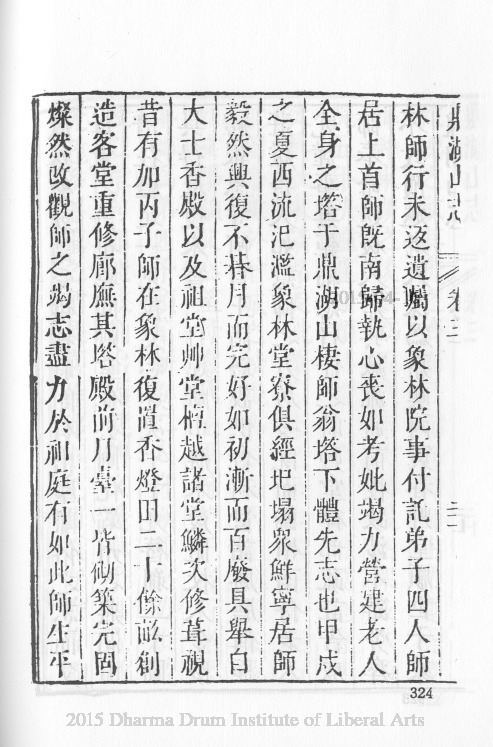 鼎湖山志 卷三
林師行未返遺囑以象林院事付託弟子四人師
居上首師既南歸執心喪如考妣竭力營建老人
全身之塔于鼎湖山棲師翁塔下體先志也甲戌
之夏西流汜濫象林堂寮俱經圯塌眾鮮寧居師
毅然興復不朞月而完好如初漸而百廢具舉自
大士香殿以及祖堂艸堂檀越諸堂鱗次修葺視
昔有加丙子師在象林復置香燈田二十餘畝創
造客堂重修廊廡其塔殿前月臺一皆砌築完固
燦然改觀師之竭志盡力於祖庭有如此師生平
324
2015 Dharma Drum Institute of Liberal Arts